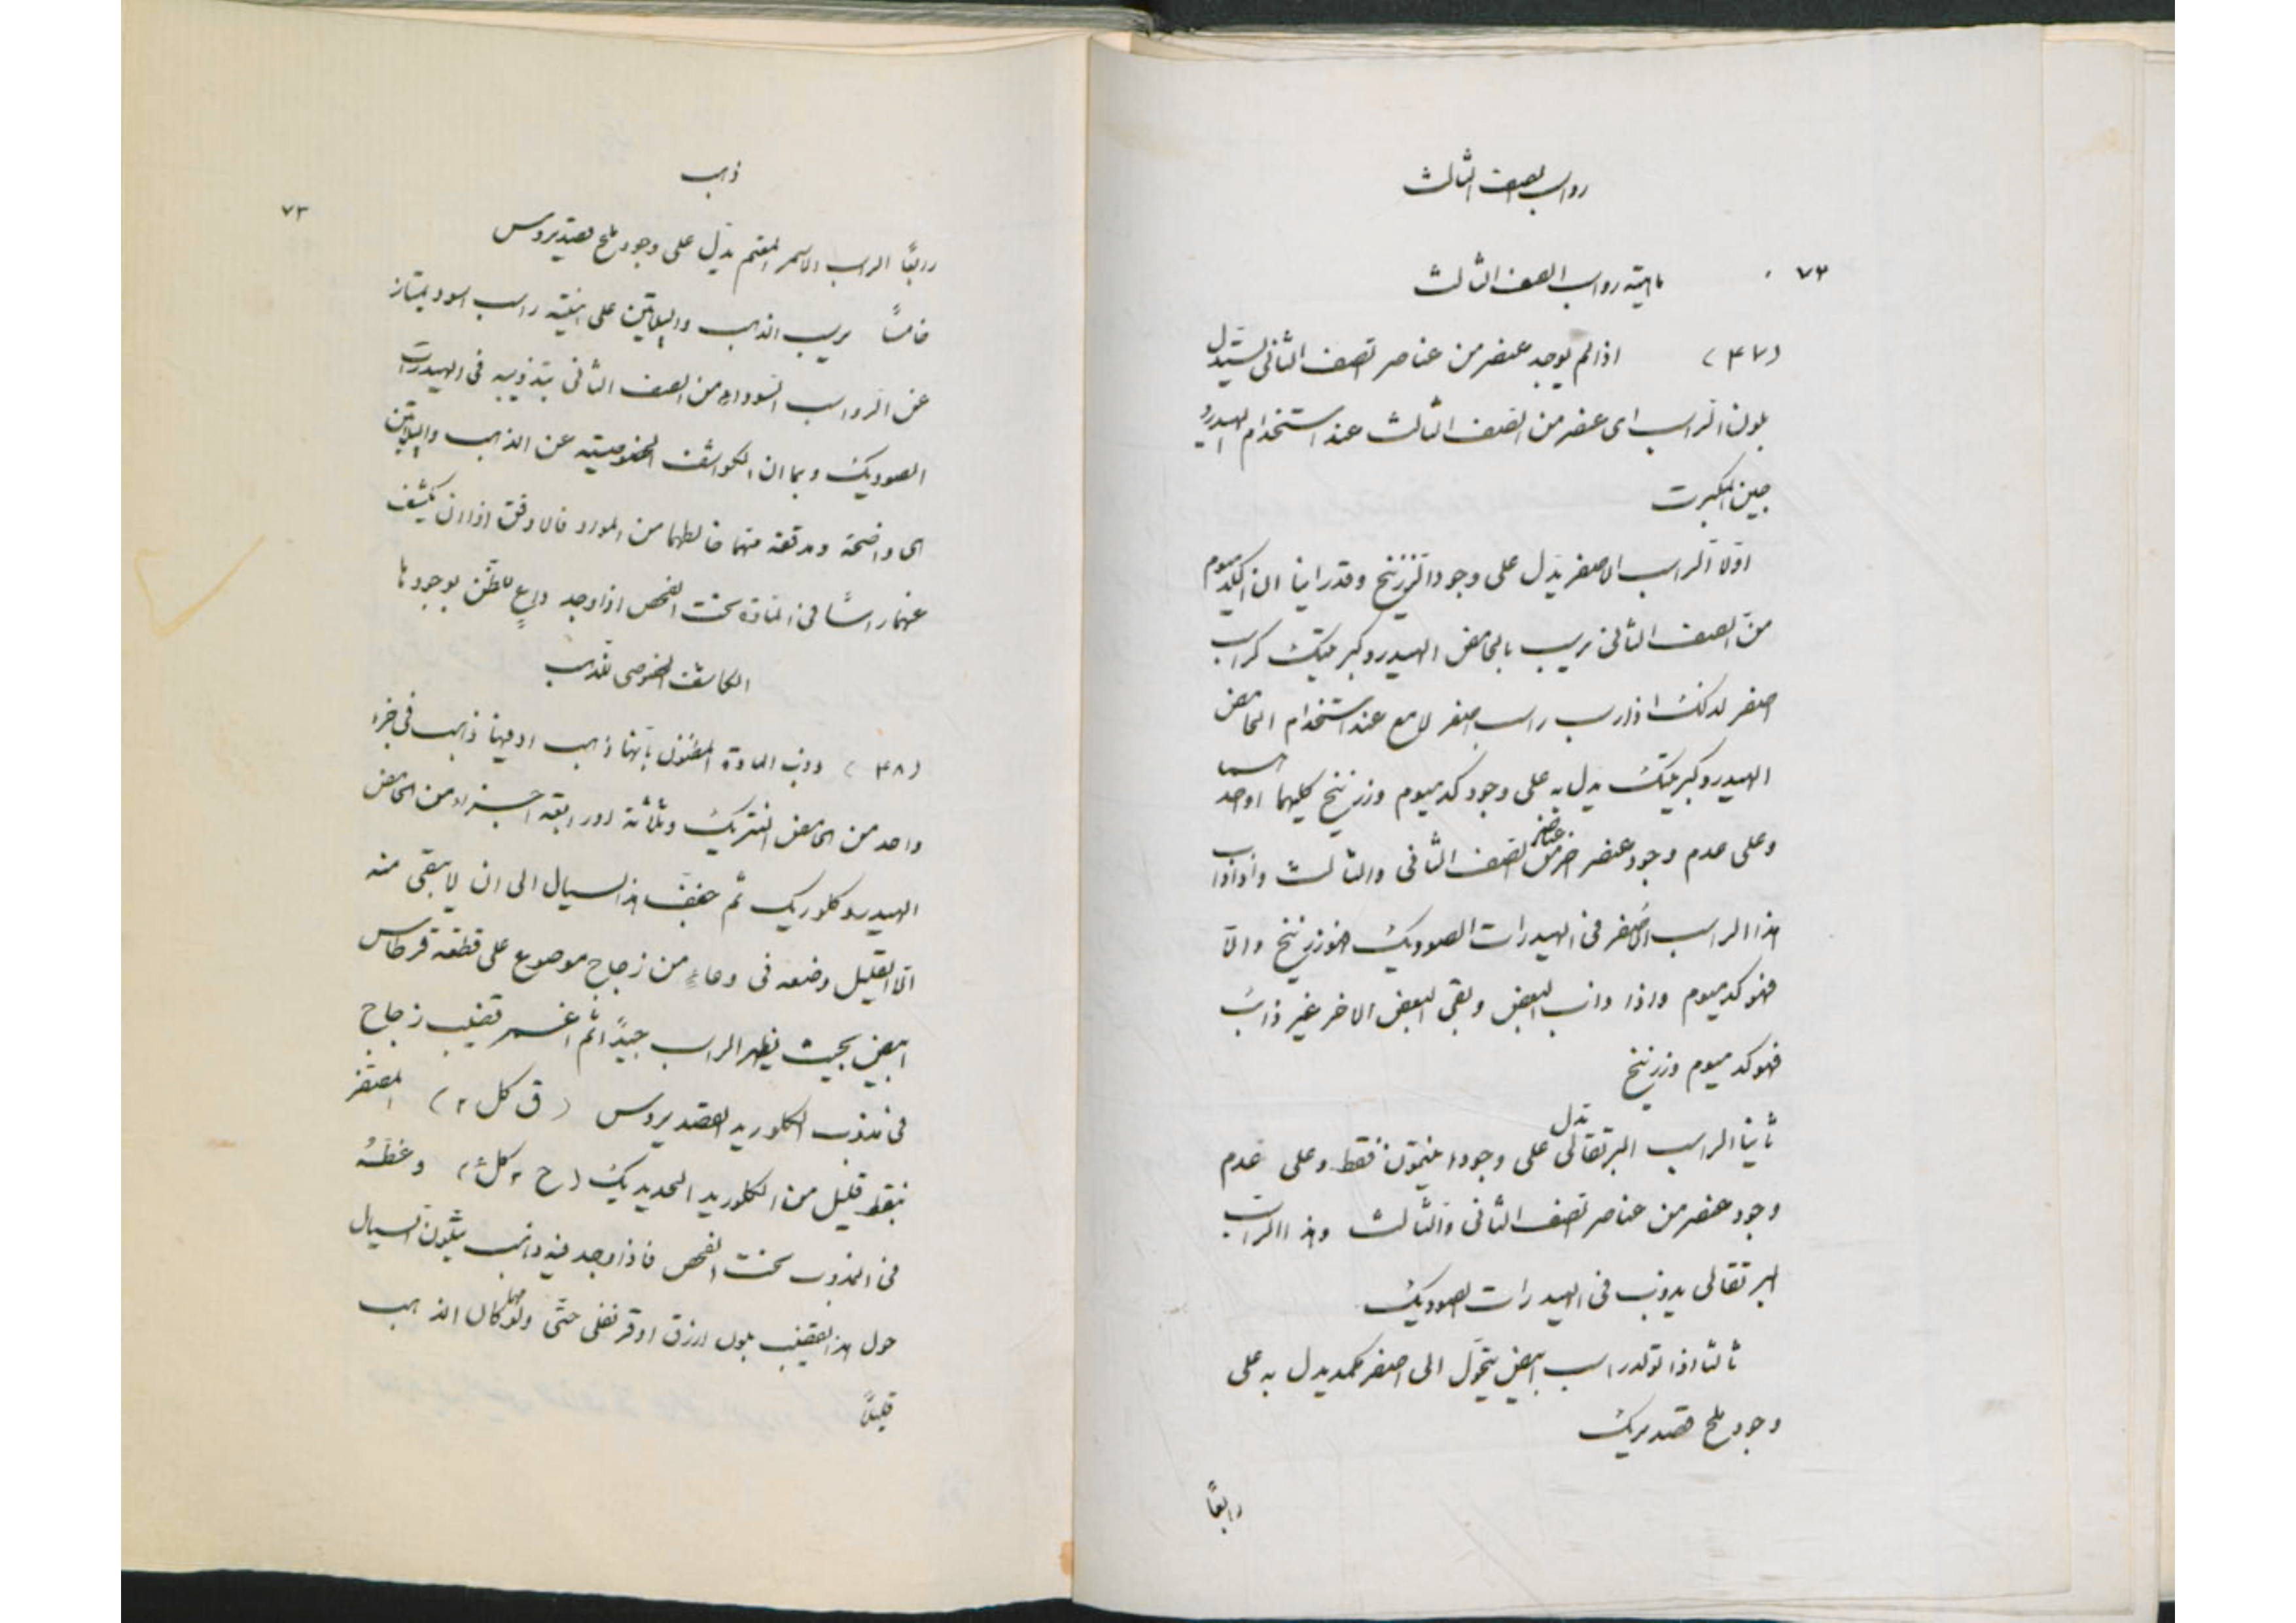 رواسب الصف الثالث
٧٢
ماهية رواسب الصف الثالث
(٤٧) اذا لم يوجد عنصر من عناصر الصف الثانى يستدل
بلون الراسب اى عنصر من الصف الثالث عند استخدام الهيدرو
جين المكبرت
اولا الراسب الاصفر يدل على وجود الزرنيخ وقد راينا ان الكدميوم
من الصف الثانى يرسب بالحامض الهيدروكبريتيك كراسب
اصفر لذلك اذا رسب راسب اصفر لامع عند استخدام الحامض
الهيدروكبريتيك يدل به على وجود كدميوم وزرنيخ كليهما او احدهما
وعلى عدم وجود عنصر اخر من عناصر الصف الثانى والثالث واذا ذاب
هذا الراسب الاصفر فى الهيدرات الصوديك فهو زرنيخ والا
فهو كدميوم واذا ذاب البعض وبقى البعض الاخر غير ذائب
فهو كدميوم وزرنيخ
ثانيا الراسب البرتقالى يدل على وجود انتيمون فقط وعلى عدم
وجود عنصر من عناصر الصف الثانى والثالث وهذا الراسب
البرتقالى يذوب فى الهيدرات الصوديك
ثالثا اذا تولد راسب ابيض يتحول الى اصفر كمد يدل به على
وجود ملح قصديريك
رابعًا
ذهب
٧٣
رابعًا الراسب الاسمر المقتم يدل على وجود ملح قصديروس
خامسًا يرسب الذهب والپلاتين على هيئة راسب اسود يمتاز
عن الرواسب السوداء من الصف الثانى بتذويبه فى الهيدرات
الصوديك وبما ان الكواشف الخصوصية عن الذهب والپلاتين
هى واضحة ومدققة فالاوفق اذا ان يكشف
عنهما راسًا فى المادة تحت الفحص اذا وجد داعٍ للظن بوجودها
الكاشف الخصوصى للذهب
(٤٨) ذوب المادة المظنون بانها ذهب او فيها ذهب فى جزء
واحد من الحامض النتريك وثلاثة او اربعة اجزاء من الحامض
الهيدروكلوريك ثم خفف هذا السيال الى ان لا يبقى منه
الا القليل وضعه فى وعاء من زجاج موضوع على قطعة قرطاس
ابيض بحيث يظهر الراسب جيدًا ثم اغمس قضيب زجاج
فى مذوب الكلوريد القصديروس (ق كل ٢) المصفر
بنقط قليل من الكلوريد الحديديك (ح ٢ كل ٦) وغطه
فى المذوب تحت الفحص فاذا وجد فيه ذهب يتلون السيال
حول هذا القضيب بلون ازرق او قرنفلى حتى ولو مهما كان الذهب
قليلاً